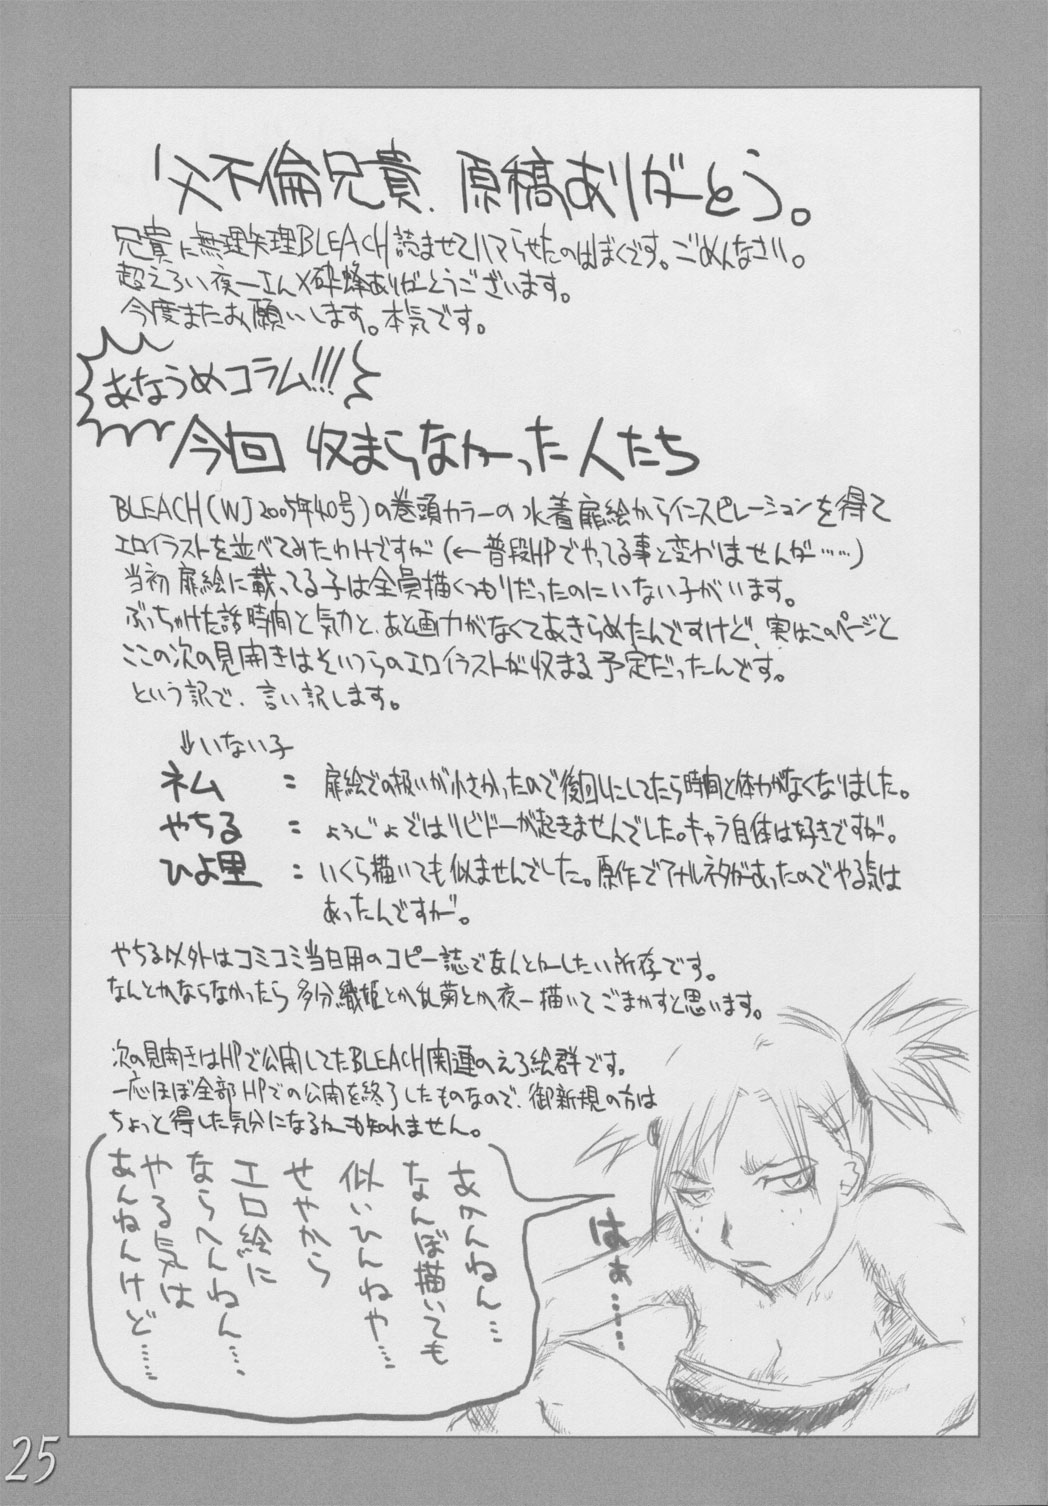 父不倫兄貴、原稿ありがーとう。
兄貴に無理矢理BLEACH読ませてハマらせたのはぼくです。ごめんなさい。
超えろい夜一さん×砕蜂ありがとうございます。
今度またお願いします。本気です。
あなうめコラム!!!
今回 収まらなかった人たち
BLEACH(WJ2005年40号)の巻頭カラーの水着扉絵からインスピレーションを得て
エロイラストを並べてみたわけですが(←普段HPでやってる事と変わりませんが……)
当初扉絵に載ってる子は全員描くつもりだったのにいない子がいます。
ぶっちゃけた話時間と気力と、あと画力がなくてあきらめたんですけど、実はこのページと
ここの次の見開きはそいつらのエロイラストが収まる予定だったんです。
という訳で、言い訳します。
↓いない子
ネム : 扉絵での扱いが小さかったので後回しにしてたら時間と体力がなくなりました。
やちる : ようじょではリビドーが起きませんでした。キャラ自体は好きですが。
ひよ里 : いくら描いても似ませんでした。原作でアナルネタがあったのでやる気は
あったんですが。
やちる以外はコミコミ当日用のコピー誌でなんとかーしたい所存です。
なんとかならなかったら多分織姫とか乱菊とか夜一描いてごまかすと思います。
次の見開きはHPで公開してたBLEACH関連のえろ絵群です。
一応ほぼ全部HPでの公開を終了したものなので、御新規の方は
ちょっと得した気分になるかも知れません。
あかんねん…
なんぼ描いても
似いひんねや…
せやから
エロ絵に
ならへんねん……
やる気は
あんねんけど……
はぁ……
25